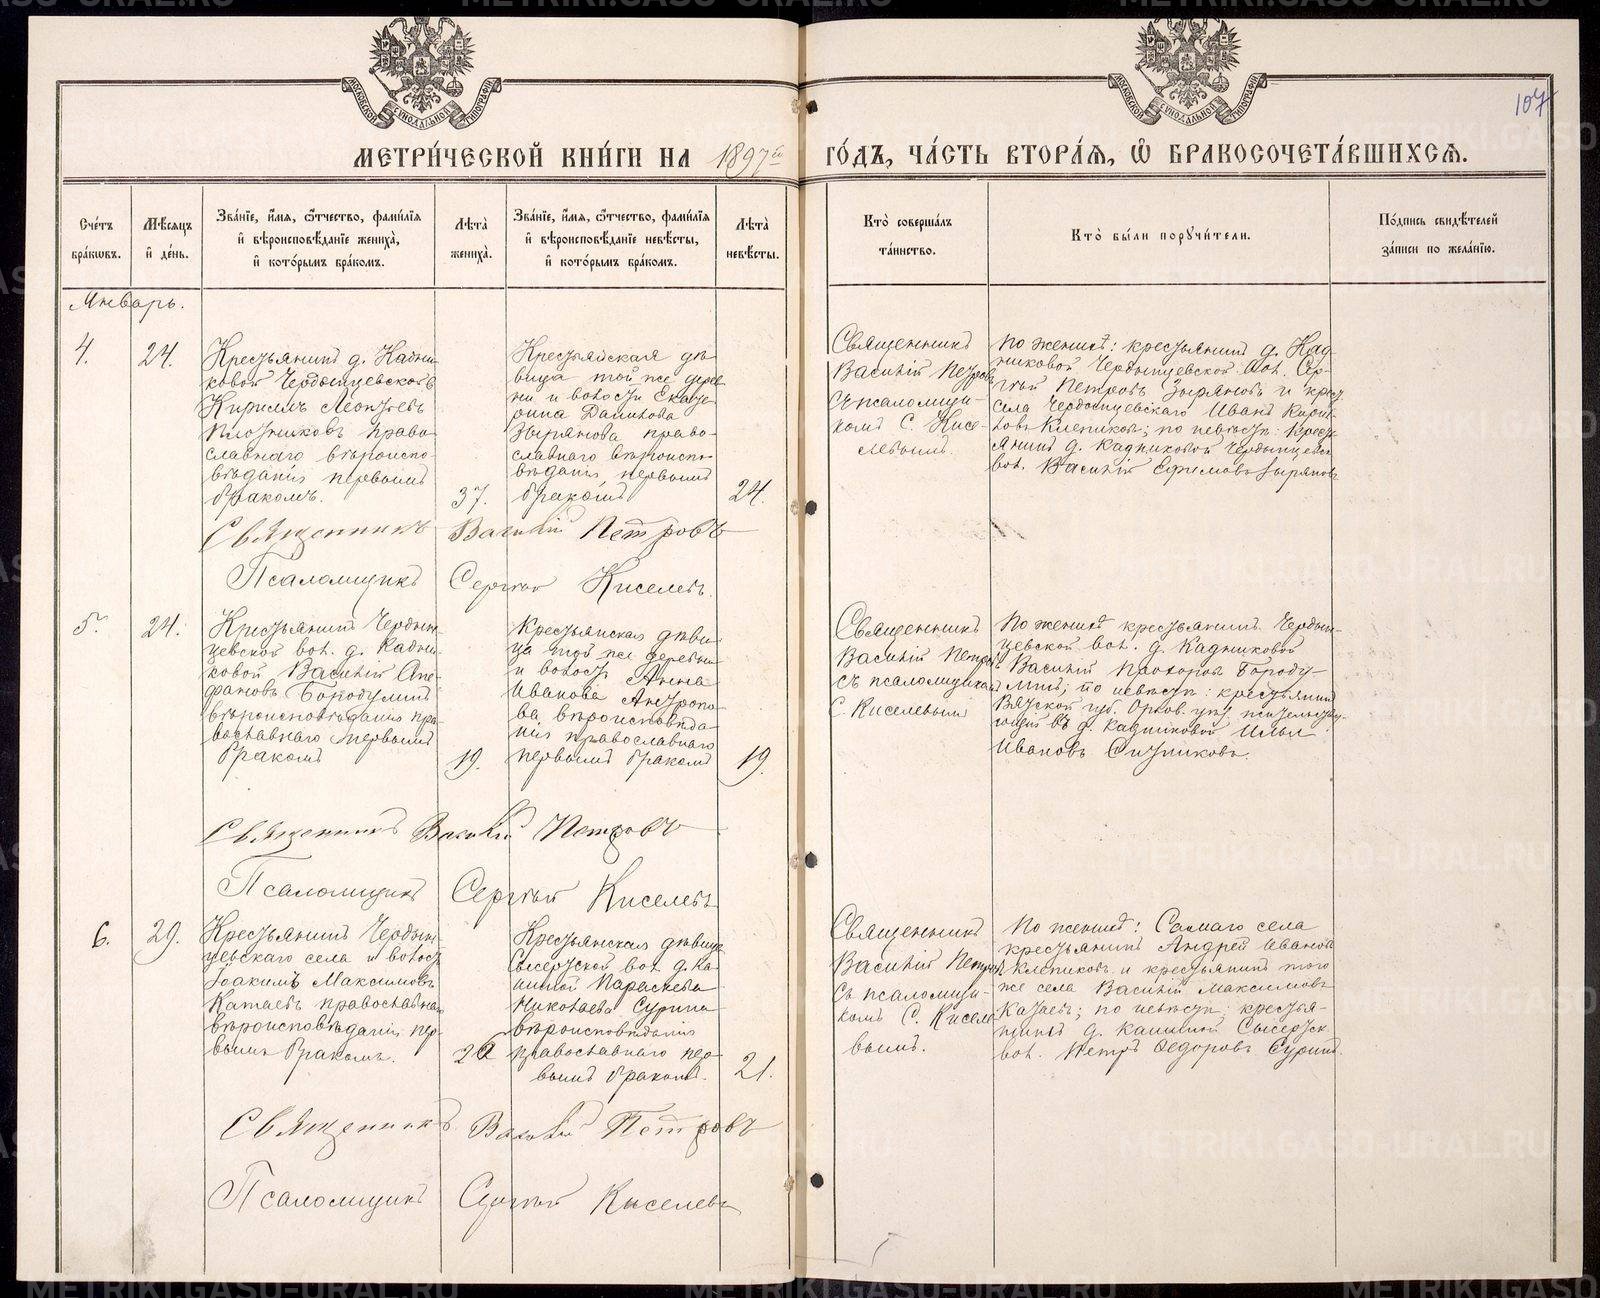 107
МЕТРИ́ЧЕСКОЙ КНИ́ГИ НА 1897й ГО́ДЪ, ЧА́СТЬ ВТОРА́Я, Ѿ БРАКОСОЧЕТА́ВШИХСЯ.
Сче́тъ бра́ковъ.
Мѣ́сяцъ и҆ де́нь.
Зва́нїе, и҆́мя, ѻ҆́тчество, фами́лїя
и҆ вѣроисповѣ́данїе жениха̀,
и҆ кото́рымъ бра́комъ.
Лѣ́та жениха̀.
Зва́нїе, и҆́мя, ѻ҆́тчество, фами́лїя
и҆ вѣроисповѣ́данїе невѣ́сты,
и҆ кото́рымъ бра́комъ.
Лѣ́та невѣ́сты.
Кто̀ соверша́лъ
та́инство.
Кто̀ бы́ли порꙋчи́тели.
По́дпись свидѣ́телей
за́писи по жела́нїю.
Январь.
4.
24.
Крестьянинъ д. Кадни-
ковой Чердынцевской в.
Кириллъ Леонтьевъ
Плотниковъ право-
славнаго вѣроиспо-
вѣданія первымъ
бракомъ.
37.
Крестьянская дѣ-
вица той же дерев-
ни и волости Екате-
рина Даншова
Зырянова право-
славнаго вѣроиспо-
вѣданія первымъ
бракомъ
24.
Священникъ
Василій Петровъ
съ псаломщи-
комъ С. Кисе-
левымъ.
По женихѣ: крестьянинъ д. Кад-
никовой Чердынцевской вол. Сер-
гѣй Петровъ Зыряновъ и крест.
села Чердынцевскаго Иванъ Кирил-
ловъ Клепиковъ; по невѣстѣ: крест-
янинъ д. Кадниковой Чердынцевск.
вол. Василій Ефимовъ Зыряновъ
Священникъ Василій Петровъ
Псаломщикъ Сергѣй Киселевъ.
5.
24.
Крестьянинъ Чердын-
цевской вол. д. Кадни-
ковой Василій Епи-
фановъ Бородулинъ
вѣроисповѣданія пра-
вославнаго первымъ
бракомъ
19.
Крестьянская дѣви-
ца той же деревни
и волости Анна
Иванова Антропо-
ва вѣроисповѣда-
нія православнаго
первымъ бракомъ
19.
Священникъ
Василій Петровъ
съ псаломщикомъ
С. Киселевымъ
По женихѣ крестьянинъ Чердын-
цевской вол. д. Кадниковой
Василій Прохоровъ Бороду-
линъ; по невѣстѣ: крестьянинъ
Вятской губ. Орлов. уѣз. жительству-
ющій въ д. Кадниковой Илья
Ивановъ Ситниковъ.
Священникъ Василій Петровъ
Псаломщикъ Сергѣй Киселевъ
6.
29.
Крестьянинъ Чердын-
цевскаго села и волости
Іоакимъ Максимовъ
Катаевъ православнаго
вѣроисповѣданія пер-
вымъ бракомъ.
Крестьянская дѣвица
Сысертской вол. д. Ка-
шиной Параскева
Николаева Сурина
вѣроисповѣданія
православнаго пер-
вымъ бракомъ.
21.
Священникъ
Василій Петровъ
съ псаломщи-
комъ С. Киселе-
вымъ.
По женихѣ: Самаго села
крестьянинъ Андрей Ивановъ
Клепиковъ и крестьянинъ того
же села Василій Максимовъ
Катаевъ; по невѣстѣ: крестья-
нинъ д. Кашиной Сысертск.
вол. Петръ Ѳедоровъ Суринъ.
Священникъ Василій Петровъ
Псаломщикъ Сергѣй Киселевъ